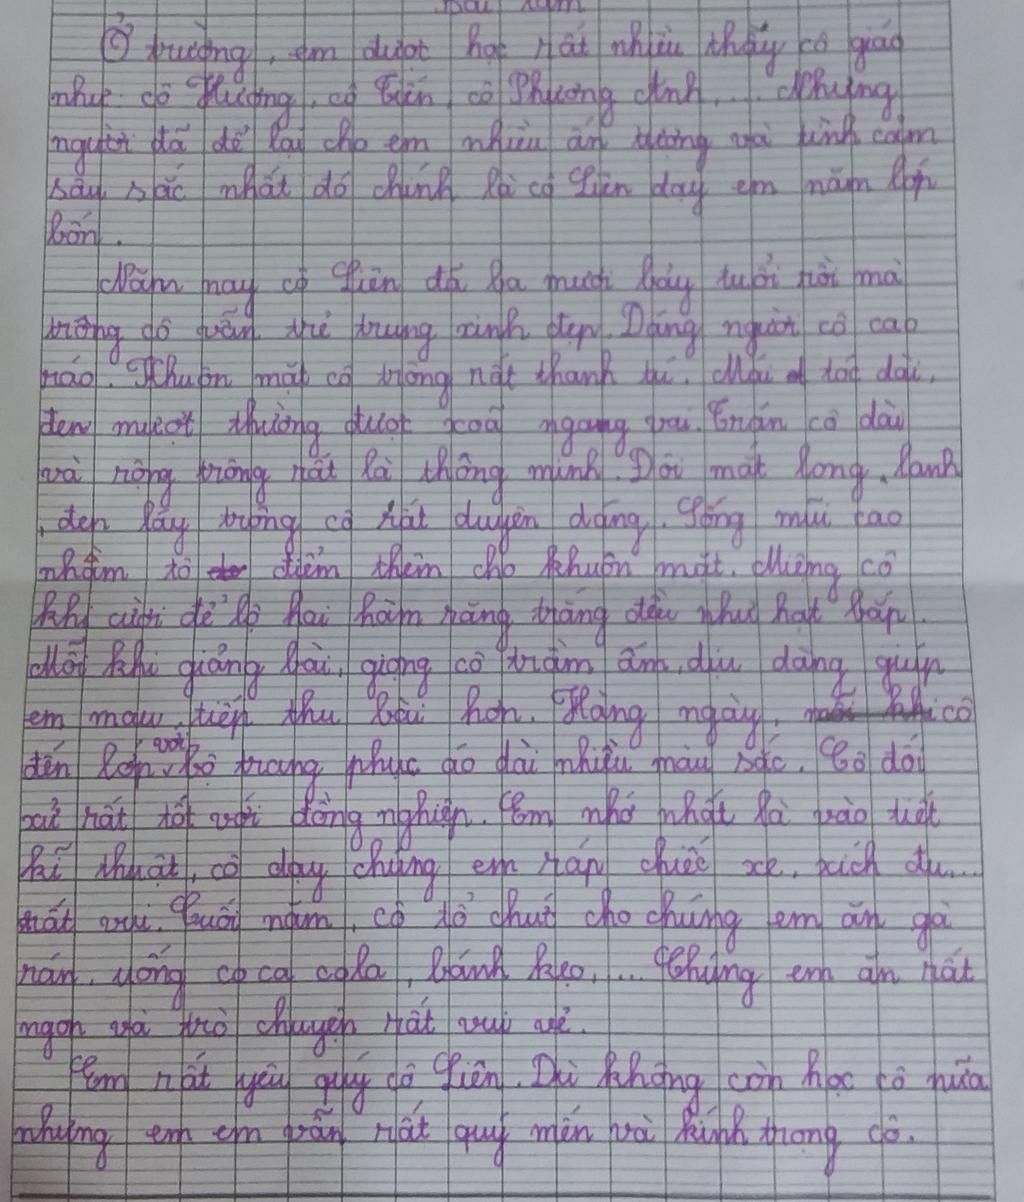 Bài làm
Ở trường, em được học rất nhiều thầy cô giáo
như cô Hương, cô Tiến, cô Phương Anh,... Nhưng
người đã để lại cho em nhiều ấn tượng và tình cảm
sâu sắc nhất đó chính là cô Liên dạy em năm lớp
bốn.
Năm nay cô Liên đã ba mươi bảy tuổi rồi mà
trông cô vẫn trẻ trung xinh đẹp. Dáng người cô cao
ráo. Khuôn mặt cô trông rất thanh tú. Mái tóc dài,
đen mượt thường được xoã ngang vai. Trán cô dài
và rộng trông rất là thông minh. Đôi mắt long lanh
, đen láy trông cô rất duyên dáng. Sống mũi cao
nhằm tô điểm thêm cho khuôn mặt. Miệng cô
khi cười để lộ hai hàm răng trắng đều như hạt bắp.
Mỗi khi giảng bài, giọng cô trầm ấm, dịu dàng giúp
em mau tiếp thu bài hơn. Hàng ngày, cô
đến lớp với bộ trang phục áo dài nhiều màu sắc. Cô đối
xử rất tốt với đồng nghiệp. Em nhớ nhất là vào tiết
kĩ thuật, cô dạy chúng em ráp chiếc xe, xích đu...
rất vui. Cuối năm, cô tổ chức cho chúng em ăn gà
rán, uống co ca cola, bánh kẹo,... Chúng em ăn rất
ngon và trò chuyện rất vui vẻ.
Em rất yêu quý cô Liên. Dù không còn học cô nữa
nhưng em em vẫn rất quý mến và kính trọng cô.